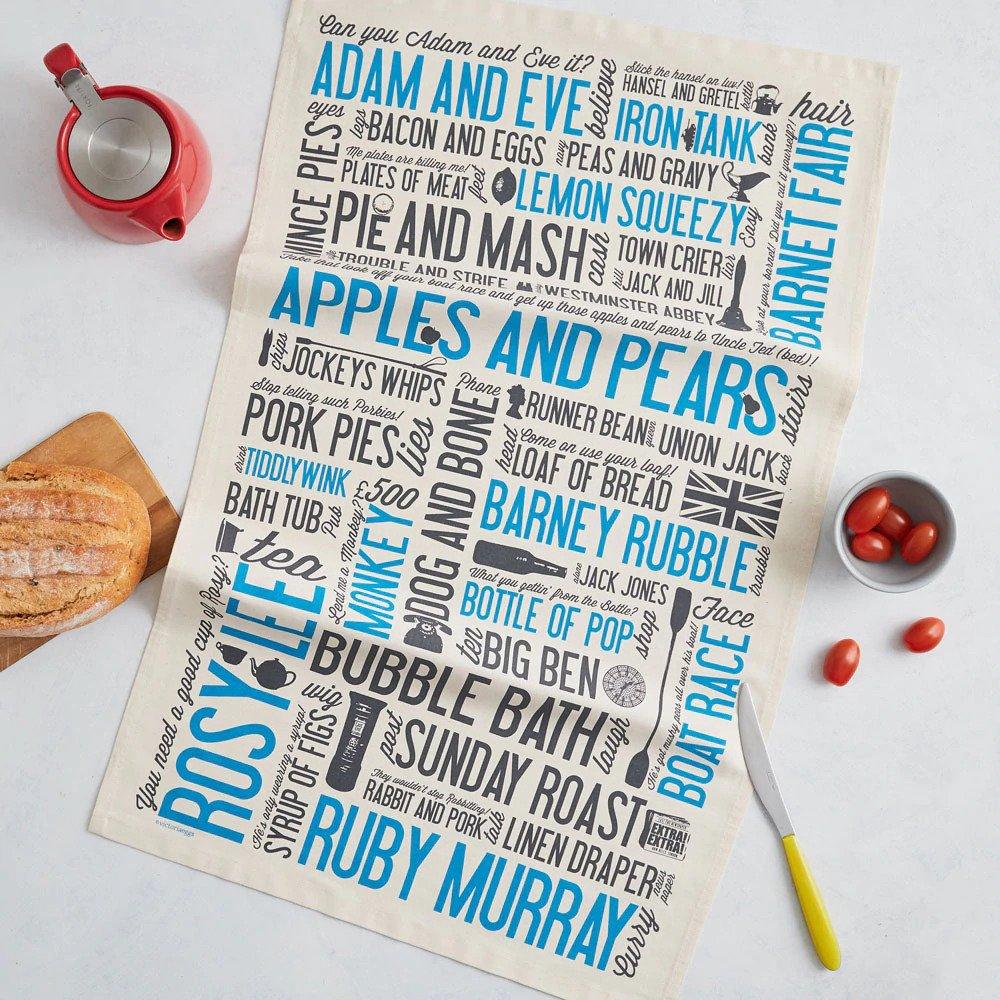 Can you Adam and Eve it?
ADAM AND EVE
believe
Stick the hansel on luv!
HANSEL AND GRETEL
kettle
hair
eyes
legs
BACON AND EGGS
IRON TANK
bank
MINCE PIES
Me plates are killing me!
PLATES OF MEAT
feet
navy
PEAS AND GRAVY
LEMON SQUEEZY
Easy
Look at your barnet! Did you cut it yourself?!
BARNET FAIR
PIE AND MASH
cash
TOWN CRIER
liar
JACK AND JILL
TROUBLE AND STRIFE
WESTMINSTER ABBEY
Take that look off your boat race and get up those apples and pears to Uncle Ted (bed)!
APPLES AND PEARS
stairs
chips
JOCKEYS WHIPS
Phone
RUNNER BEAN
queen
UNION JACK
back
Stop telling such Porkies!
PORK PIES
lies
DOG AND BONE
head
Come on use your loaf!
LOAF OF BREAD
drink
TIDDLYWINK
£500
BATH TUB
Pub
BARNEY RUBBLE
trouble
tea
Lend me a Monkey?
MONKEY
alone
JACK JONES
What you gettin' from the Bottle?
BOTTLE OF POP
shop
Face
You need a good cup of Rosy?
ROSY LEE
ten
BIG BEN
He's got mushy peas all over his boat!
BOAT RACE
BUBBLE BATH
laugh
wig
He's only wearing a syrup!
SYRUP OF FIGS
post
SUNDAY ROAST
They wouldn't stop Rabbiting!
RABBIT AND PORK
talk
LINEN DRAPER
news paper
EXTRA!
EXTRA!
RUBY MURRAY
Curry
©victoriaeggs